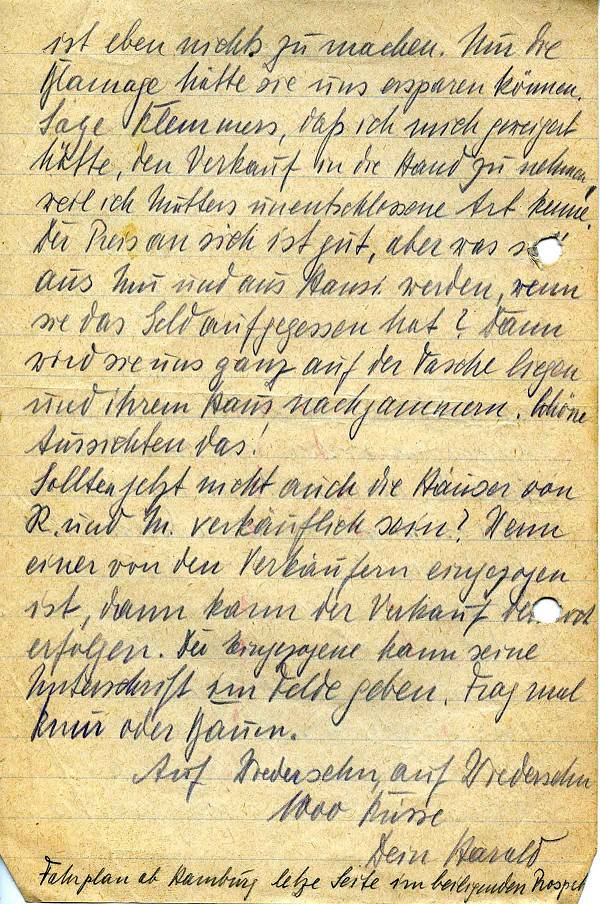 ist eben nichts zu machen. Nur die
Blamage hätte sie uns ersparen können.
Sage Klemmers, daß ich mich geweigert
hätte, den Verkauf in die Hand zu nehmen,
weil ich Mutters unentschlossene Art kenne.
Der Preis an sich ist gut, aber was
aus Mu und aus Hansi werden, wenn
sie das Geld aufgegessen hat? Dann
wird sie uns ganz auf der Tasche liegen
und ihrem Haus nachjammern. Schöne
Aussichten das!
Sollten jetzt nicht auch die Häuser von
R. und M. verkäuflich sein? Wenn
einer von den Verkäufern eingezogen
ist, dann kann der Verkauf
erfolgen. Der Eingezogene kann seine
Unterschrift im Felde geben. Frag mal
oder
Auf Wiedersehn, auf Wiedersehn
1000 Küsse
Dein Harald
Fahrplan ab Hamburg letze Seite im beiligenden Prospek